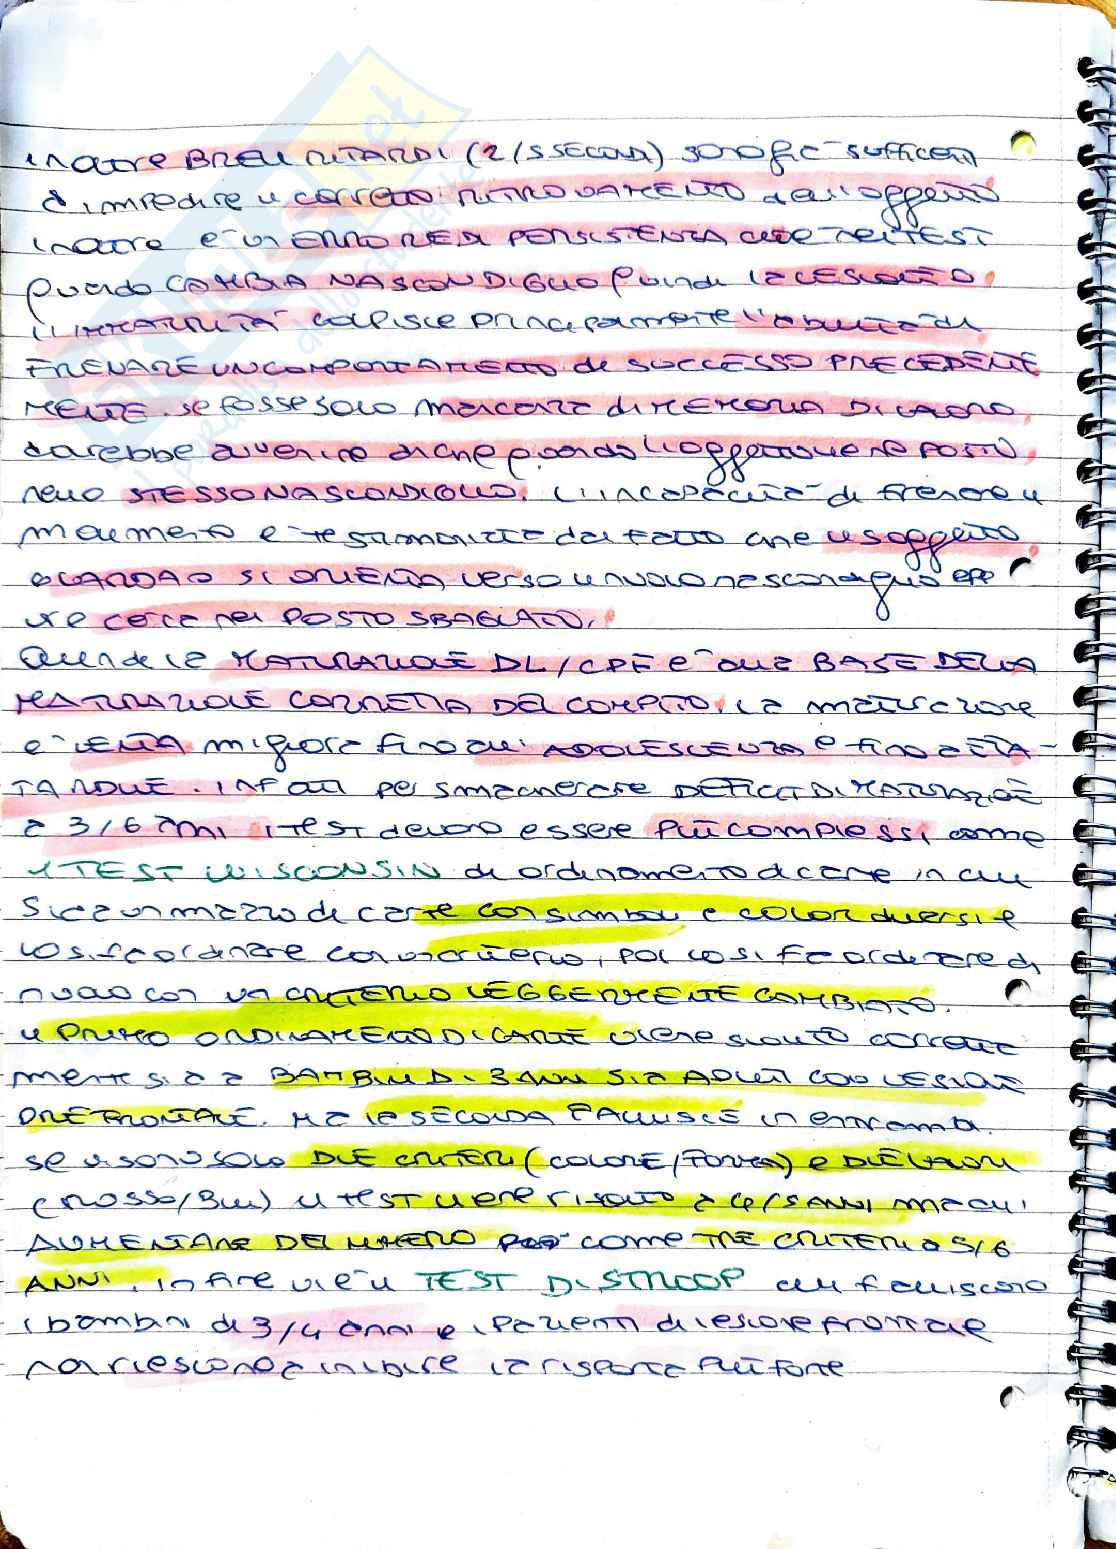 inoltre BREVI RITARDI (2/5 SECONDI) sono già sufficienti
a impedire il corretto RITROVAMENTO dell'oggetto
inoltre è un ERRORE DI PERSISTENZA che nei TEST
quando CAMBIA NASCONDIGLIO quindi la LESIONE O
l'IMMATURITÀ colpisce principalmente l'abilità di
FRENARE UN COMPORTAMENTO di SUCCESSO PRECEDENTE
MENTE. se fosse solo mancanza di MEMORIA DI LAVORO,
dovrebbe avvenire anche quando l'oggetto viene POSTO
nello STESSO NASCONDIGLIO. L'incapacità di frenare il
movimento è testimoniata dal fatto che il soggetto
GUARDA O SI ORIENTA verso il nuovo nascondiglio epp
ure cerca nel POSTO SBAGLIATO.
Quindi la MATURAZIONE DL/CPF è alla BASE DELLA
MATURAZIONE CORRETTA DEL COMPITO. la maturazione
è LENTA migliora fino all'ADOLESCENZA e fino a ETÀ
TARDIVE. Infatti per smascherare DEFICIT DI MATURAZIONE
a 3/6 anni i test devono essere PIÙ COMPLESSI come
il TEST WISCONSIN di ordinamento di carte in cui
si dà un mazzo di carte con simboli e colori diversi e
lo si fa ordinare con un criterio, poi lo si fa ordinare di
nuovo con un CRITERIO LEGGERMENTE CAMBIATO.
il PRIMO ORDINAMENTO DI CARTE viene svolto corretta
mente sia a BAMBINI DI 3 ANNI SIA ADULTI CON LESIONE
PREFRONTALE. Ma la SECONDA FALLISCE in entrambi.
se vi sono solo DUE CRITERI (COLORE/FORMA) e DUE VALORI
(ROSSO/BLU) il TEST viene risolto a 4/5 ANNI ma all'
AUMENTARE DEL NUMERO come TRE CRITERI a 5/6
ANNI. infine vi è il TEST DI STROOP cui falliscono
i bambini di 3/4 anni e i pazienti di lesione frontale
non riescono a inibire la risposta più forte